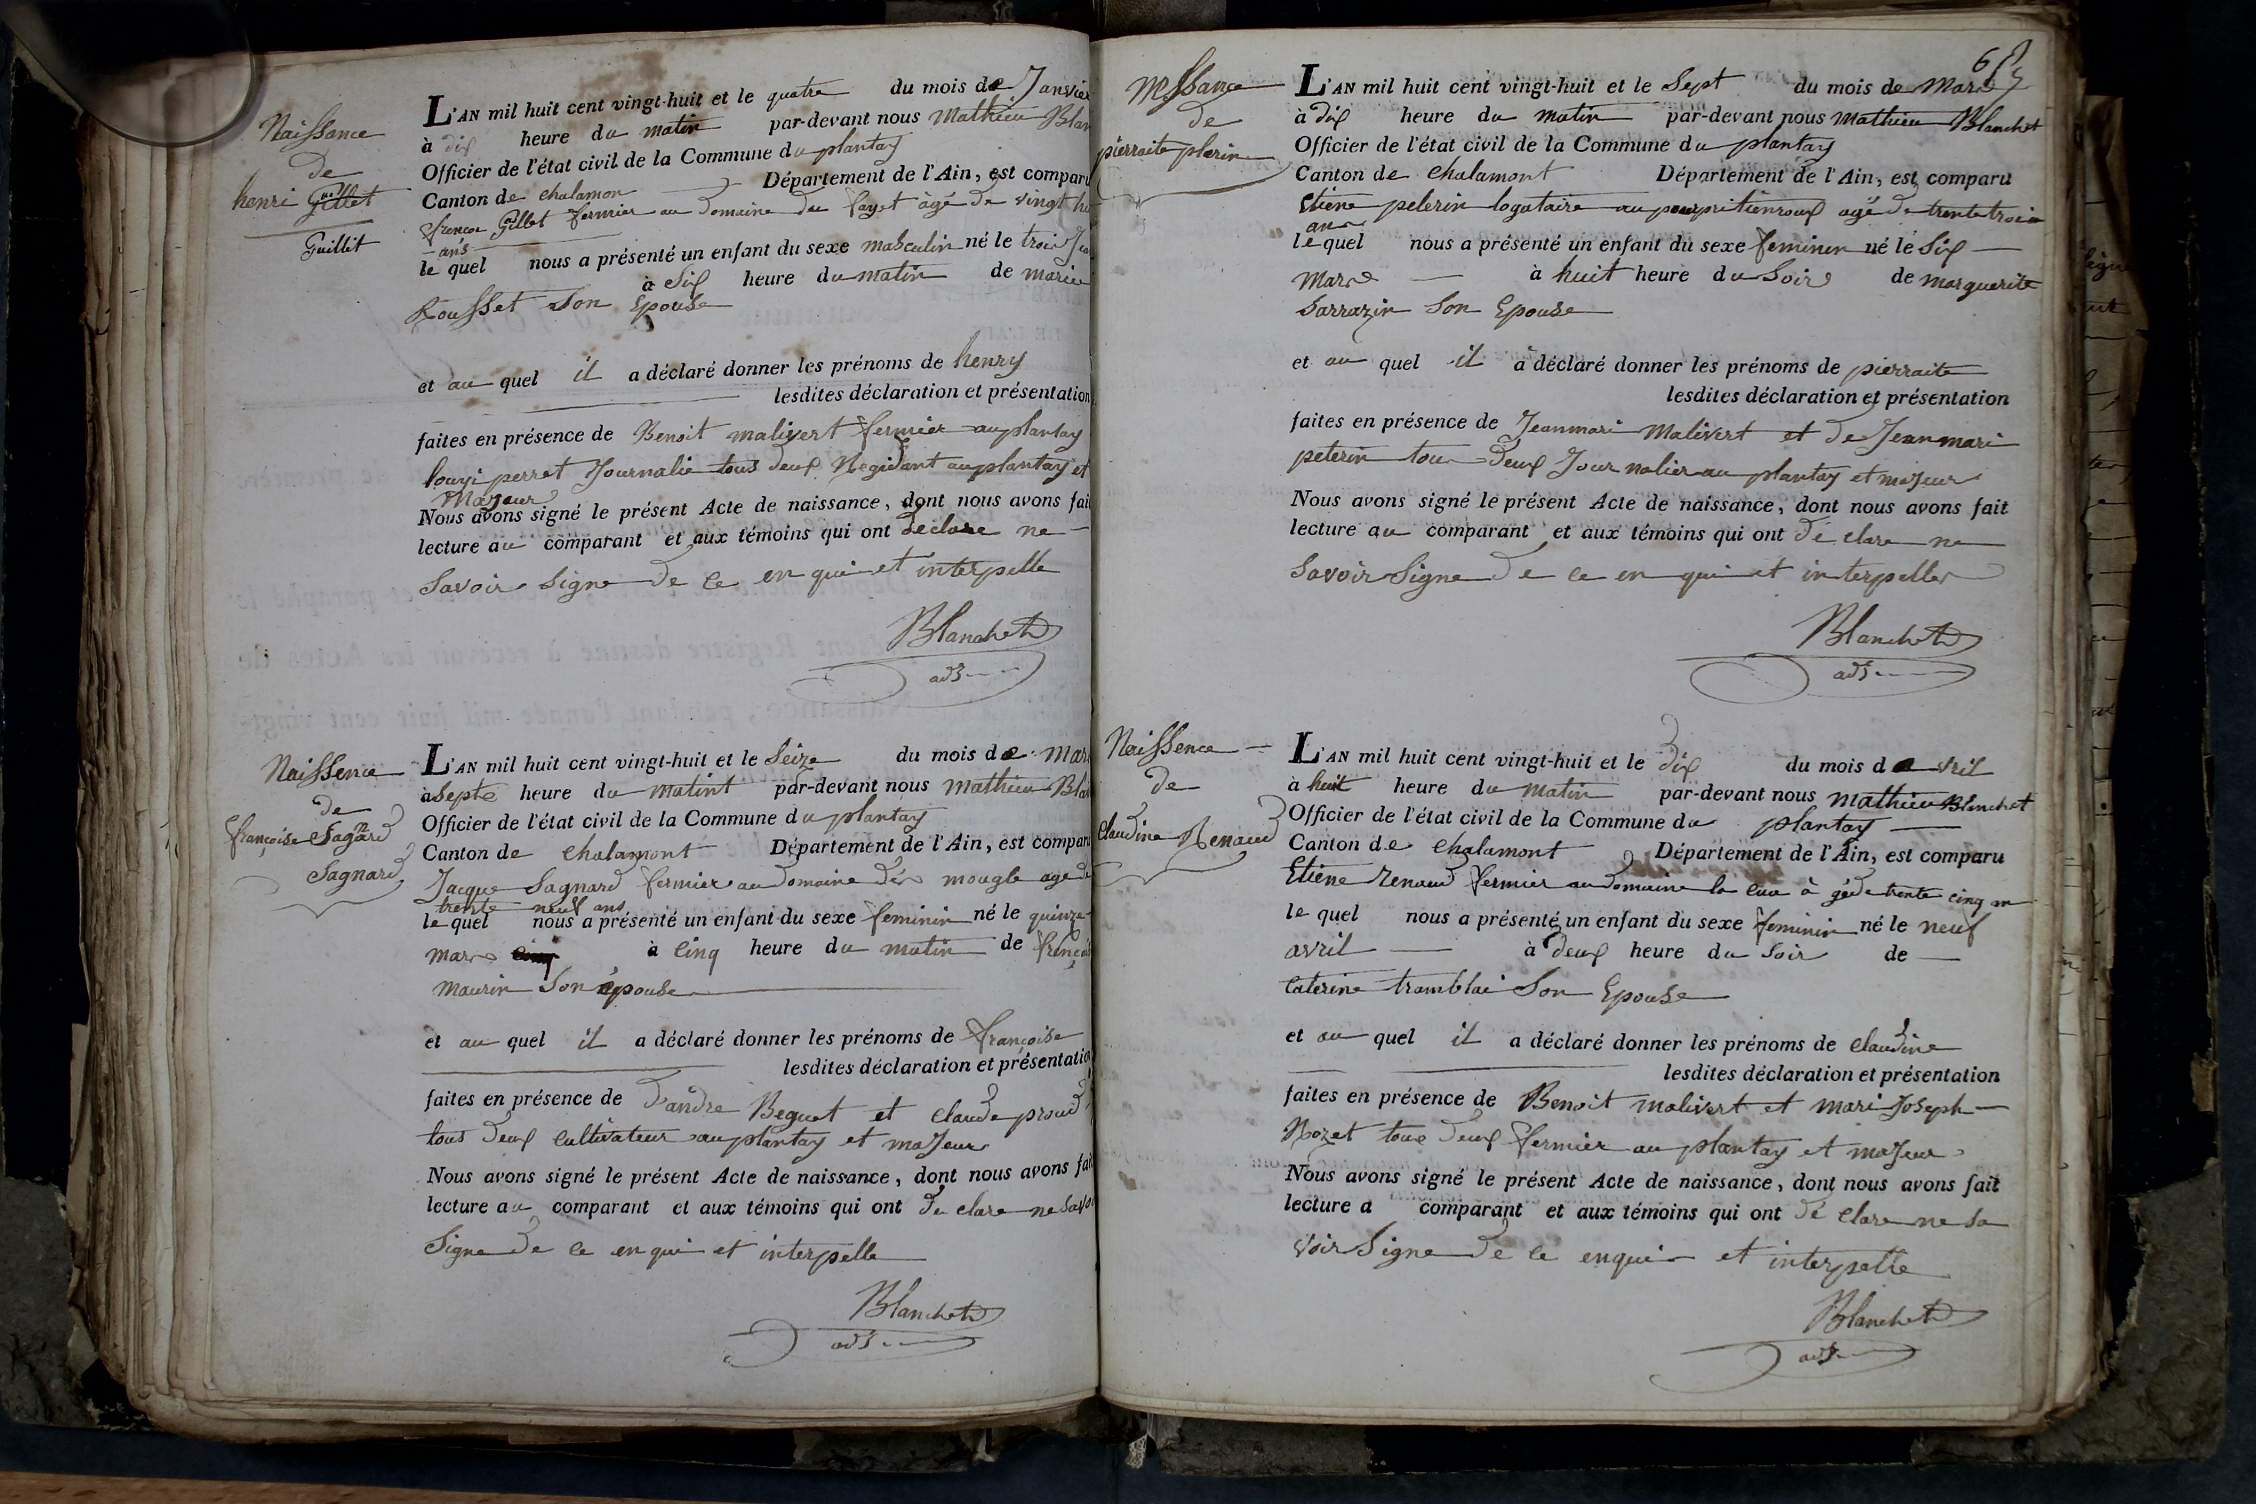 Naissance
de
henri Gillet
Guillit
L'AN mil huit cent vingt-huit et le quatre du mois de Janvier
à dix heure du matin par-devant nous Mathieu Blan
Officier de l'état civil de la Commune du plantay
Canton de chalamon Département de l'Ain, est comparu
françoi Gillet fermier au Domaine du fayet âgé de vingt hu
ans
le quel nous a présenté un enfant du sexe masculin né le trois Jan
à Six heure du matin de marie
Rousset Son Epouse
et au quel il a déclaré donner les prénoms de henry
lesdites déclaration et présentation
faites en présence de Benoit malivert fermier au plantay
louyi perret Journalie tous deuxRegidant au plantay et
Majeur
Nous avons signé le présent Acte de naissance, dont nous avons fai
lecture au comparant et aux témoins qui ont declare ne
Savoir Signe De ce en qui et interpelle
Blanchet
adj
Naissence
de
françoise Sagnard
Sagnard
L'AN mil huit cent vingt-huit et le Seize du mois de Mar
à Septe heure du matint par-devant nous mathieu Bla
Officier de l'état civil de la Commune du plantay
Canton de chalamont Département de l'Ain, est compar
Jacque Sagnard fermier au Domaine Des mougle age de
trente neuf ans
le quel nous a présenté un enfant du sexe feminin né le quinze
mars à Cinq heure du matin de françois
maurin Son épouse
et au quel il a déclaré donner les prénoms de françoise
lesdites déclaration et présentation
faites en présence de D'andre Beguet et claude proud
tous Deux Cultivateur au plantay et majeur
Nous avons signé le présent Acte de naissance, dont nous avons fai
lecture au comparant et aux témoins qui ont De clare ne Savoi
Signe De ce en qui et interpelle
Blanchet
adj
de
pierraite plerin
L'AN mil huit cent vingt-huit et le Sept du mois de Mars
à dix heure du matin par-devant nous mathieu Blanchet
Officier de l'état civil de la Commune du plantay
Canton de chalamont Département de l'Ain, est comparu
Etiene pelerin logataire au agé de trente trois
ans
le quel nous a présenté un enfant du sexe feminin né le Six
Mars à huit heure du Soir de marguerite
Sarrazin Son Epouse
et au quel il a déclaré donner les prénoms de pierraite
lesdites déclaration et présentation
faites en présence de Jeanmari Malivert et de Jeanmari
pelerin tous Deux Journalier au plantay et majeur
Nous avons signé le présent Acte de naissance, dont nous avons fait
lecture au comparant et aux témoins qui ont De clare ne
Savoir Signe De ce en qui et interpelle
Blanchet
adj
Naissence
de
Claudine Renaud
L'AN mil huit cent vingt-huit et le Dix du mois d avril
à huit heure du matin par-devant nous Mathieu Blanchet
Officier de l'état civil de la Commune du plantay
Canton de chalamont Département de l'Ain, est comparu
Etiene Renaud fermier au Domaine la à gé de trente cinq an
le quel nous a présenté un enfant du sexe feminin né le neuf
avril à deux heure du Soir de
Caterine tramblai Son Epouse
et au quel il a déclaré donner les prénoms de claudine
lesdites déclaration et présentation
faites en présence de Benoit malivert et mari Joseph
Rozet tous Deux fermier au plantay et majeur
Nous avons signé le présent Acte de naissance, dont nous avons fait
lecture a comparant et aux témoins qui ont De clare ne Sa
voir Signe De ce enqui et interpelle
Blanchet
adj